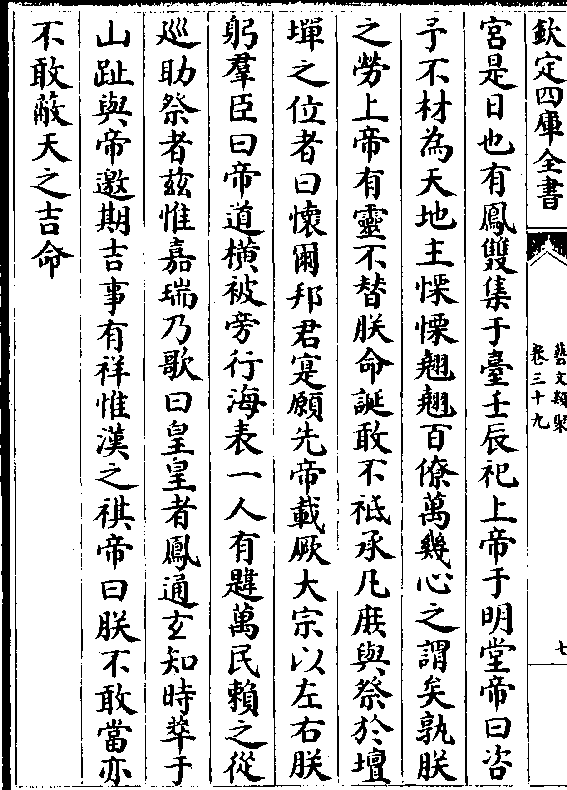 欽定四庫全書
藝文類聚
卷三十九
七
宮是日也有鳳雙集于臺壬辰祀上帝于明堂帝曰咨
予不材為天地主慄慄翹翹百僚萬幾心之謂矣孰朕
之勞上帝有靈不替朕命誕敢不祗承凡厥與祭於壇
墠之位者曰懷爾邦君寔願先帝載厥大宗以左右朕
躬羣臣曰帝道橫被旁行海表一人有韙萬民賴之從
廵助祭者兹惟嘉瑞乃歌曰皇皇者鳳通玄知時萃于
山趾與帝邀期吉事有祥惟漢之祺帝曰朕不敢當亦
不敢蔽天之吉命